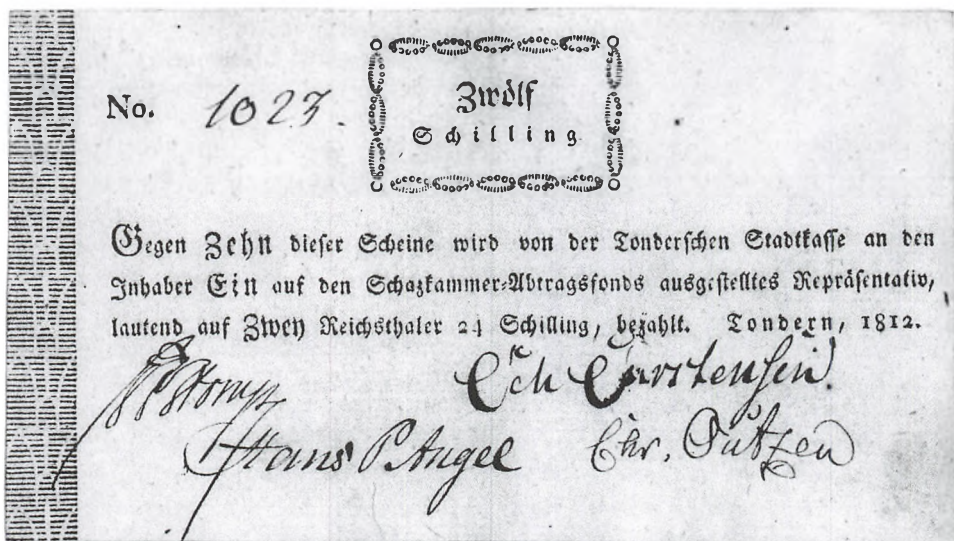 Zwölf
Schilling
No. 1023.
Gegen Zehn dieser Scheine wird von der Tonderschen Stadtkasse an den
Inhaber Ein auf den Schazkammer-Abtragsfonds ausgestelltes Repräsentativ,
lautend auf Zwey Reichsthaler 24 Schilling, bezahlt. Tondern, 1812.
Carstensen
Hans P. Angel Chr.